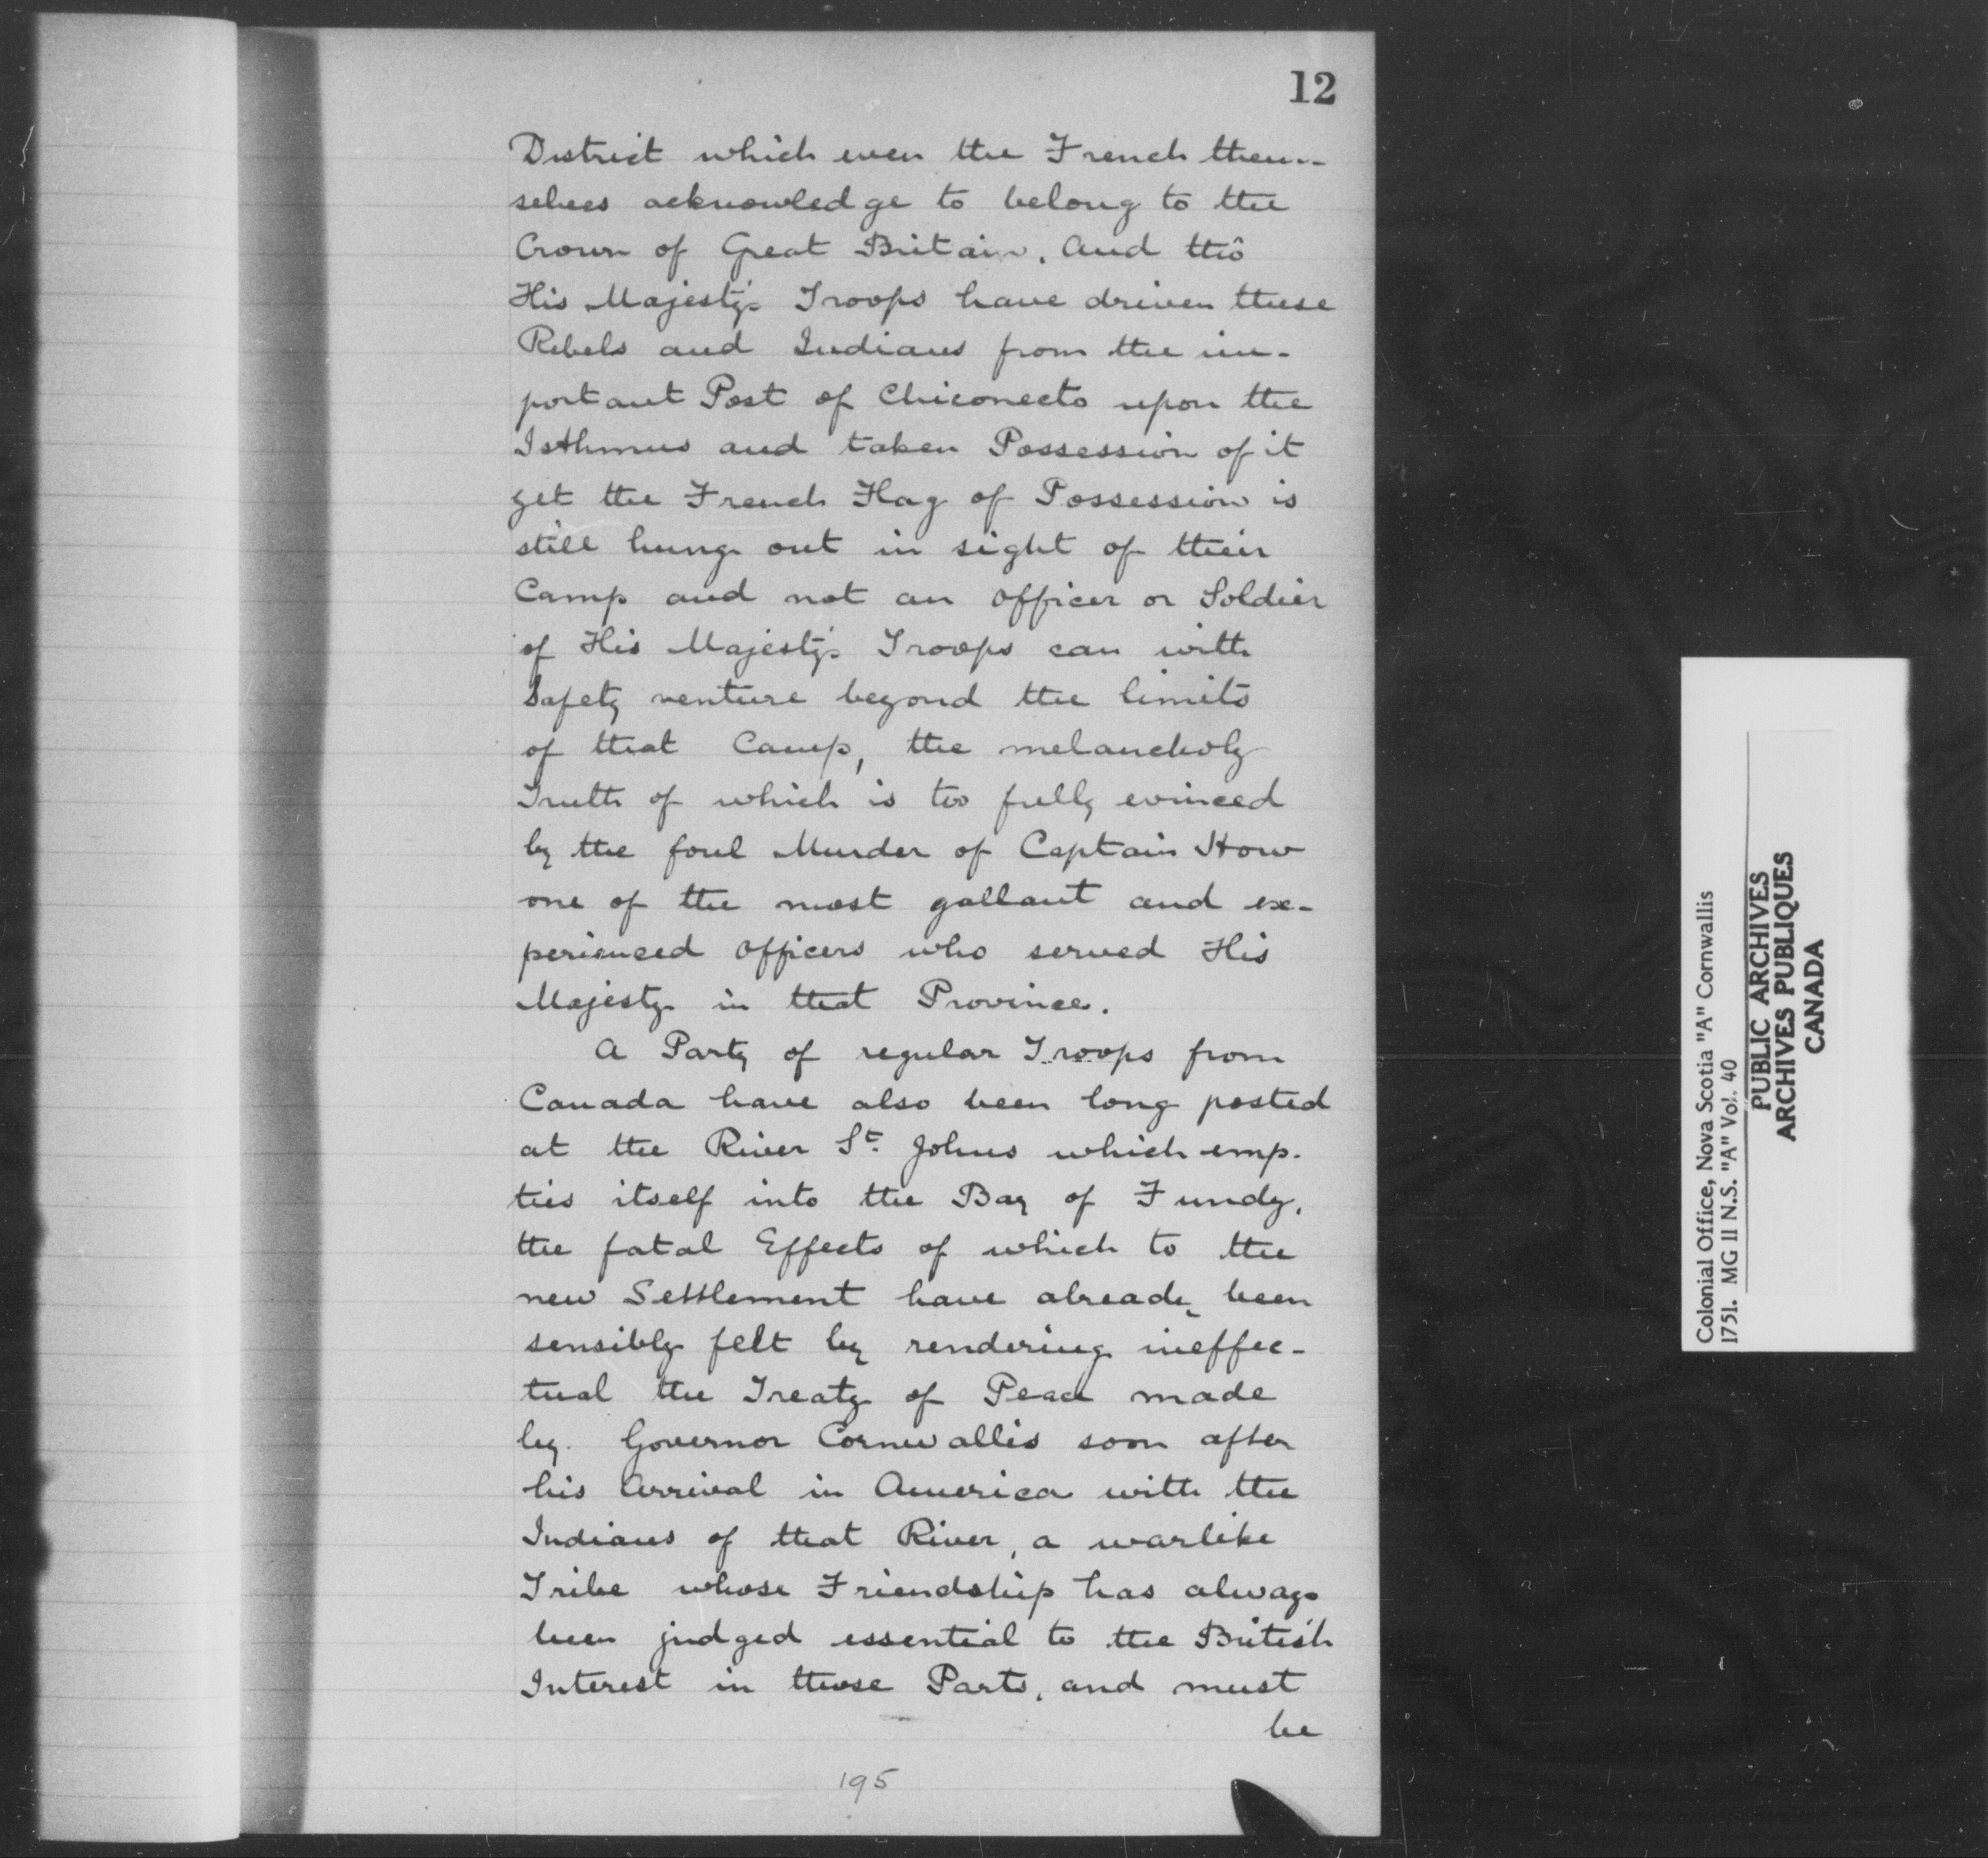 12
District which even the French them-
selves acknowledge to belong to the
Crown of Great Britain. And thô
His Majesty's Troops have driven these
Rebels and Indians from the im-
portant Post of Chiconecto upon the
Isthmus and taken Possession of it
yet the French Flag of Possession is
still hung out in sight of their
Camp and not an Officer or Soldier
of His Majesty's Troops can with
Safety venture beyond the limits
of that Camp, the melancholy
Truth of which is too fully evinced
by the foul Murder of Captain How
one of the most gallant and ex-
perienced Officers who served His
Majesty in that Province.
A Party of regular Troops from
Canada have also been long posted
at the River St. Johns which emp-
ties itself into the Bay of Fundy,
the fatal Effects of which to the
new Settlement have already been
sensibly felt by rendering ineffec-
tual the Treaty of Peace made
by Governor Cornwallis soon after
his Arrival in America with the
Indians of that River, a warlike
Tribe whose Friendship has always
been judged essential to the British
Interest in those Parts, and must
be
195
Colonial Office, Nova Scotia "A" Cornwallis
1751. MG 11 N.S. "A" Vol. 40
PUBLIC ARCHIVES
ARCHIVES PUBLIQUES
CANADA